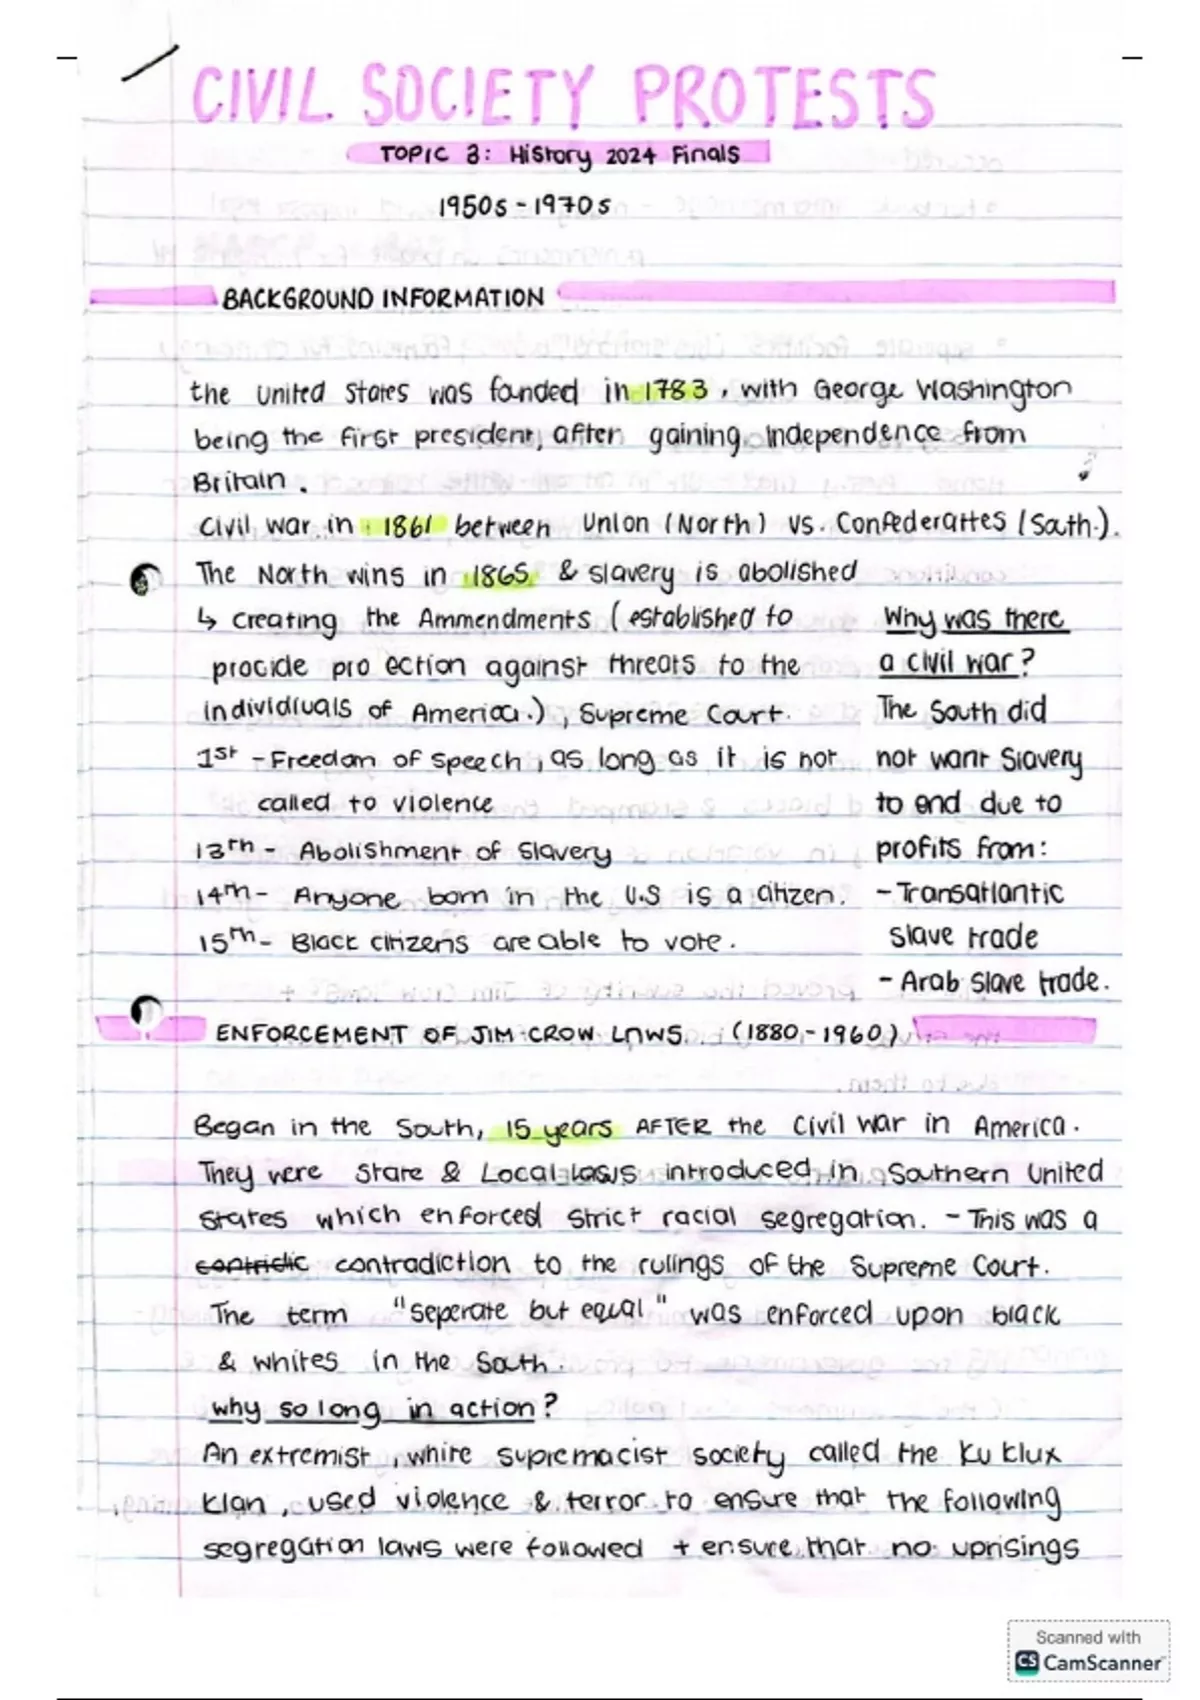 CIVIL SOCIETY PROTESTS
TOPIC 3: History 2024 Finals
1950s - 1970s
BACKGROUND INFORMATION
the United States was founded in 1783, with George Washington
being the first president, after gaining Independence from
Britain.
Civil war in 1861 between Union (North) vs. Confederattes (South).
The North wins in 1865 & slavery is abolished
↳ creating the Ammendments (established to
procide pro ection against threats to the
individiuals of America.), Supreme Court.
1st - Freedom of speech, as long as it is not
called to violence
13th - Abolishment of Slavery
14th - Anyone born in the U.S is a citizen.
15th - Black citizens are able to vote.
Why was there
a civil war?
The South did
not want Slavery
to end due to
profits from:
- Transatlantic
slave trade
- Arab slave trade.
ENFORCEMENT OF JIM CROW LAWS (1880 - 1960)
Began in the South, 15 years AFTER the Civil War in America.
They were State & Local laws introduced in Southern United
States which enforced strict racial segregation. - This was a
contridic contradiction to the rulings of the Supreme Court.
The term "seperate but equal" was enforced upon black
& whites in the South.
why so long in action?
An extremist, white supremacist society called the Ku Klux
Klan, used violence & terror to ensure that the following
segregation laws were followed + ensure that no uprisings
Scanned with
CS CamScanner